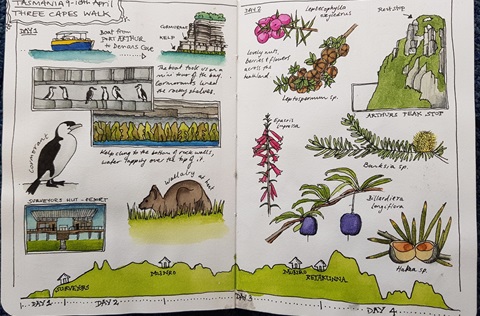 TASMANIA 9-13th April
THREE CAPES WALK
DAY 1
Boat from
PORT ARTHUR
to Denmans Cove
CORMORANTS
KELP
The boat took us on a
mini tour of the bay.
Cormorants lined
the rocky shelves.
Kelp clung to the bottom of rock walls,
water lapping over the top of it.
Cormorant
wallaby at hut
SURVEYORS HUT
DAY 2
Leptecophylla
Lovely nuts,
berries & flowers
across the
Leptospermum sp.
Epacris
impressa
REST STOP
ARTHURS PEAK STOP
Banksia sp.
Billardiera
longiflora
Hakea sp.
SURVEYORS
MUNRO
MUNRO
RETAKUNNA
DAY 1
DAY 2
DAY 3
DAY 4